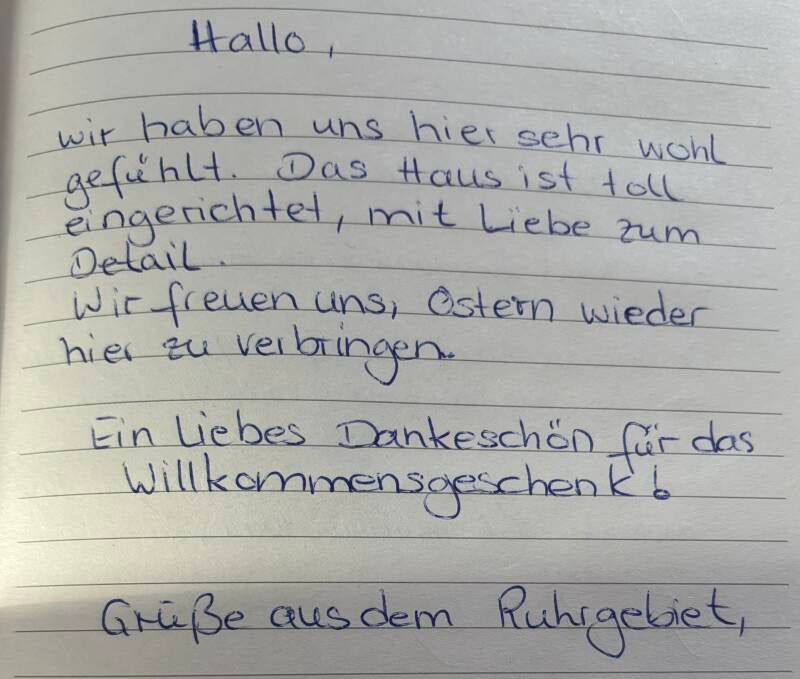 Hallo,
wir haben uns hier sehr wohl
gefühlt. Das Haus ist toll
eingerichtet, mit Liebe zum
Detail.
Wir freuen uns, Ostern wieder
hier zu verbringen.
Ein liebes Dankeschön für das
Willkommensgeschenk!
Grüße aus dem Ruhrgebiet,